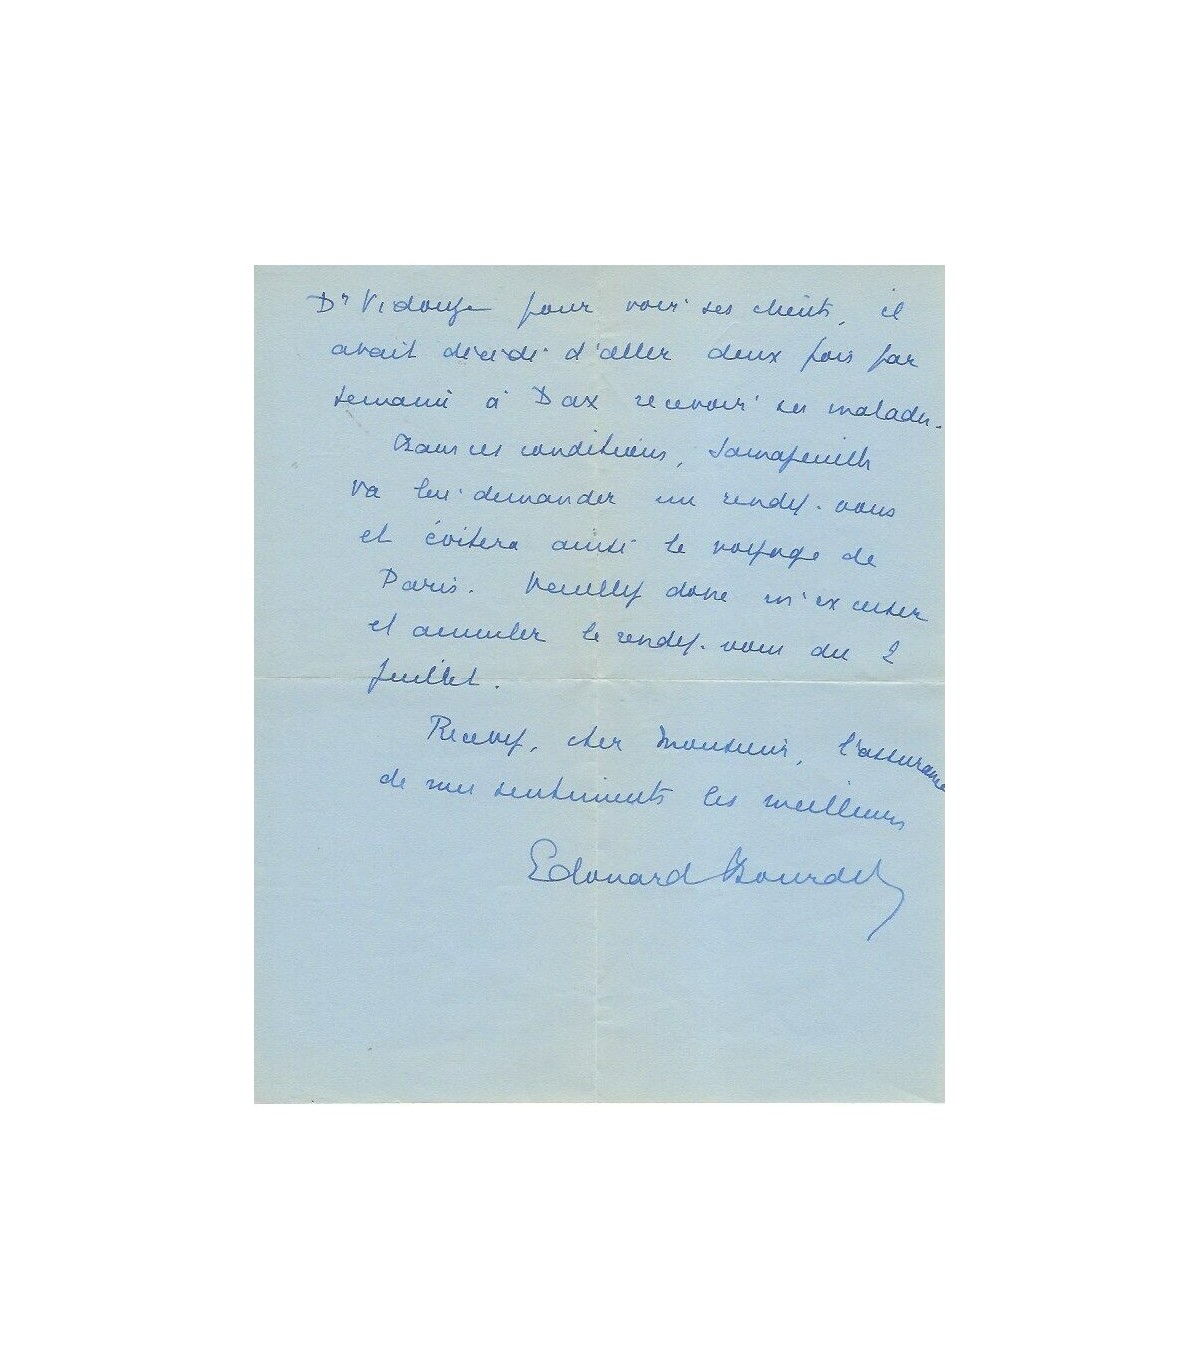 Dr Vidouze pour voir ses clients, il
avait décidé d'aller deux fois par
semaine à Dax recevoir ses malades.
Dans ces conditions,
va lui demander un rendez-vous
et évitera ainsi le voyage de
Paris. Veuillez donc m'excuser
et annuler le rendez-vous du 2
juillet.
Recevez, cher Monsieur, l'assurance
de mes sentiments les meilleurs
Edouard Bourdet